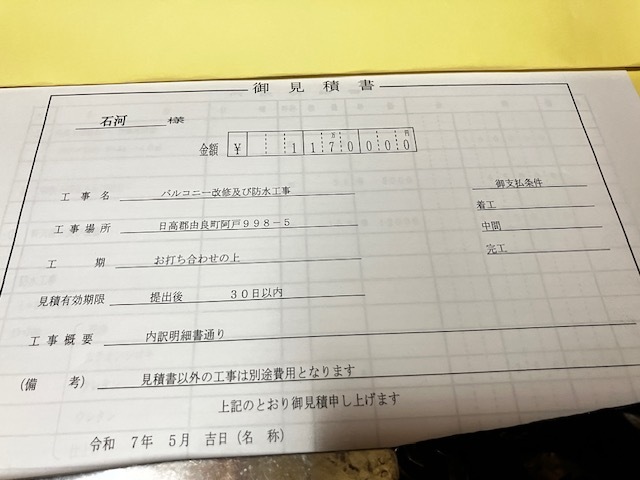 御見積書
石河 様
金額 ¥ 1170000
万 円
工事名 バルコニー改修及び防水工事
御支払条件
着工
工事場所 日高郡由良町阿戸998-5
中間
工期 お打ち合わせの上
完工
見積有効期限 提出後 30日以内
工事概要 内訳明細書通り
(備考) 見積書以外の工事は別途費用となります
上記のとおり御見積申し上げます
令和 7年 5月 吉日(名 称)